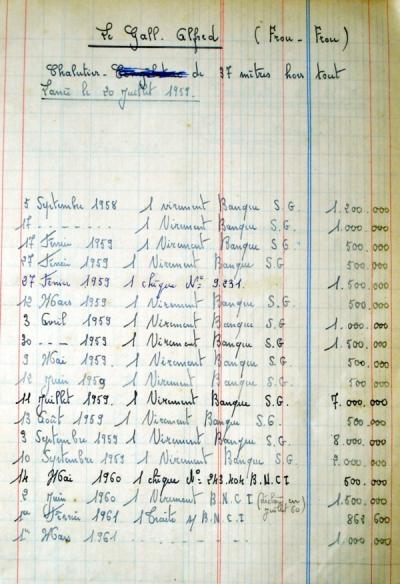 Le Gall. Alfred ( Frou - Frou )
Chalutier - de 37 mètres hors tout
Lancé le 20 Juillet 1959.
5 Septembre 1958 1 virement Banque S.G. 1.200.000
17 - - - - - - - - 1 Virement Banque S.G. 1.000.000
17 Fevrier 1959 1 Virement Banque S.G. 500.000
27 Fevrier 1959 1 Virement Banque S.G 500.000
27 Fevrier 1959 1 chèque N° 9.231. 1.500.000
12 Mars 1959 1 Virement Banque S.G 500.000
3 Avril 1959 1 Virement Banque S.G. 1.000.000
30 - - - 1959 1 Virement Banque S.G. 1.500.000
9 Mai 1959. 1 Virement Banque S.G. 500.000
12 Juin 1959 1 Virement Banque S.G. 500.000
11 Juillet 1959. 1 Virement Banque S.G. 7.000.000
13 Août 1959 1 Virement Banque S.G. 500.000
9 Septembre 1959 1 Virement Banque S.G. 8.000.000
10 Septembre 1959 1 Virement Banque S.G. .000.000
14 Mai 1960 1 chèque N° 243.404 B.N.C.I 600.000
2 Juin 1960 1 Virement B.N.C.I en Juillet 60 1.500.000
1er Fevrier 1961 1 Traite s/ B.N.C.I 862 600
1er Mars 1961 - - - - - - - - - 1.000.000